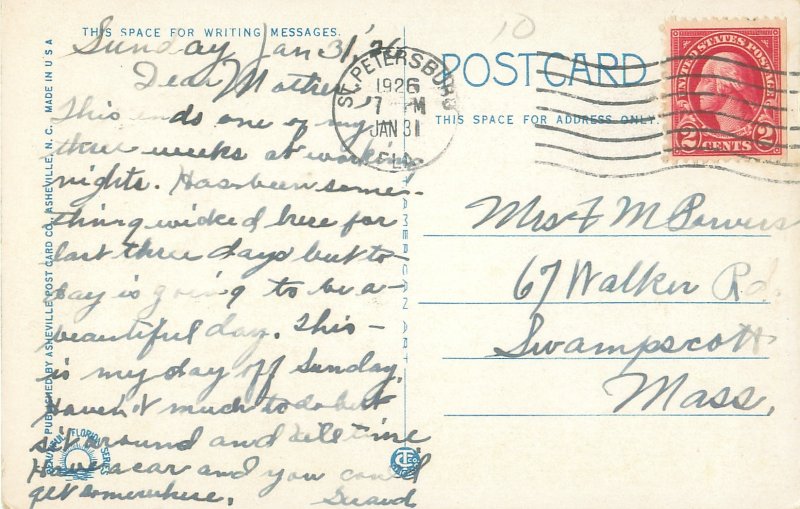 THIS SPACE FOR WRITING MESSAGES.
Sunday Jan 31, '26
Dear Mother
This ends one of my
three weeks at working
nights. Has been some-
thing wicked here for
last three days but to-
day is going to be a-
beautiful day. This-
is my day off Sunday.
Haven't much to do but
sit around and kill time
Have a car and you could
get somewhere.
PUBLISHED BY ASHEVILLE POST CARD CO., ASHEVILLE, N. C. MADE IN U S A
BEAUTIFUL FLORIDA SERIES
AMERICAN ART
CT
10
ST. PETERSBURG
1926
7 PM
JAN 31
FLA.
POSTCARD
THIS SPACE FOR ADDRESS ONLY.
UNITED STATES POSTAGE
2 CENTS 2
Mrs F M Powers
67 Walker Rd.
Swampscott
Mass.